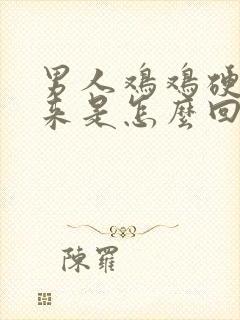 男人鸡鸡硬
来是怎麼回
陳羅